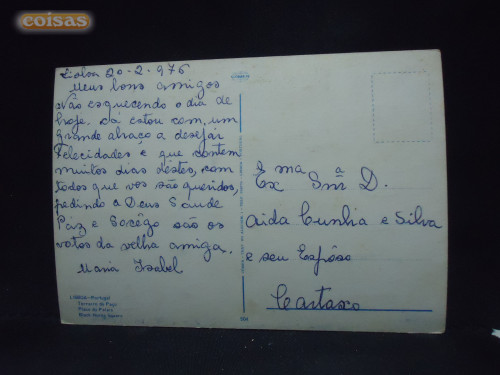 coisas
Lisboa 20-2-976
Meus bons amigos
Não esquecendo o dia de
hoje. Cá estou com, um
grande abraço a desejar
Felecidades e que contem
muitos dias dêstes, com
todos que vos são queridos,
pedindo a Deus Saude
Paz e Socêgo são os
votos da velha amiga.
Maria Isabel
LISBOA - Portugal
Terreiro do Paço
Black Horse Square
Exma Snra D.
Aida Cunha e Silva
e seu Espôso
Cartaxo